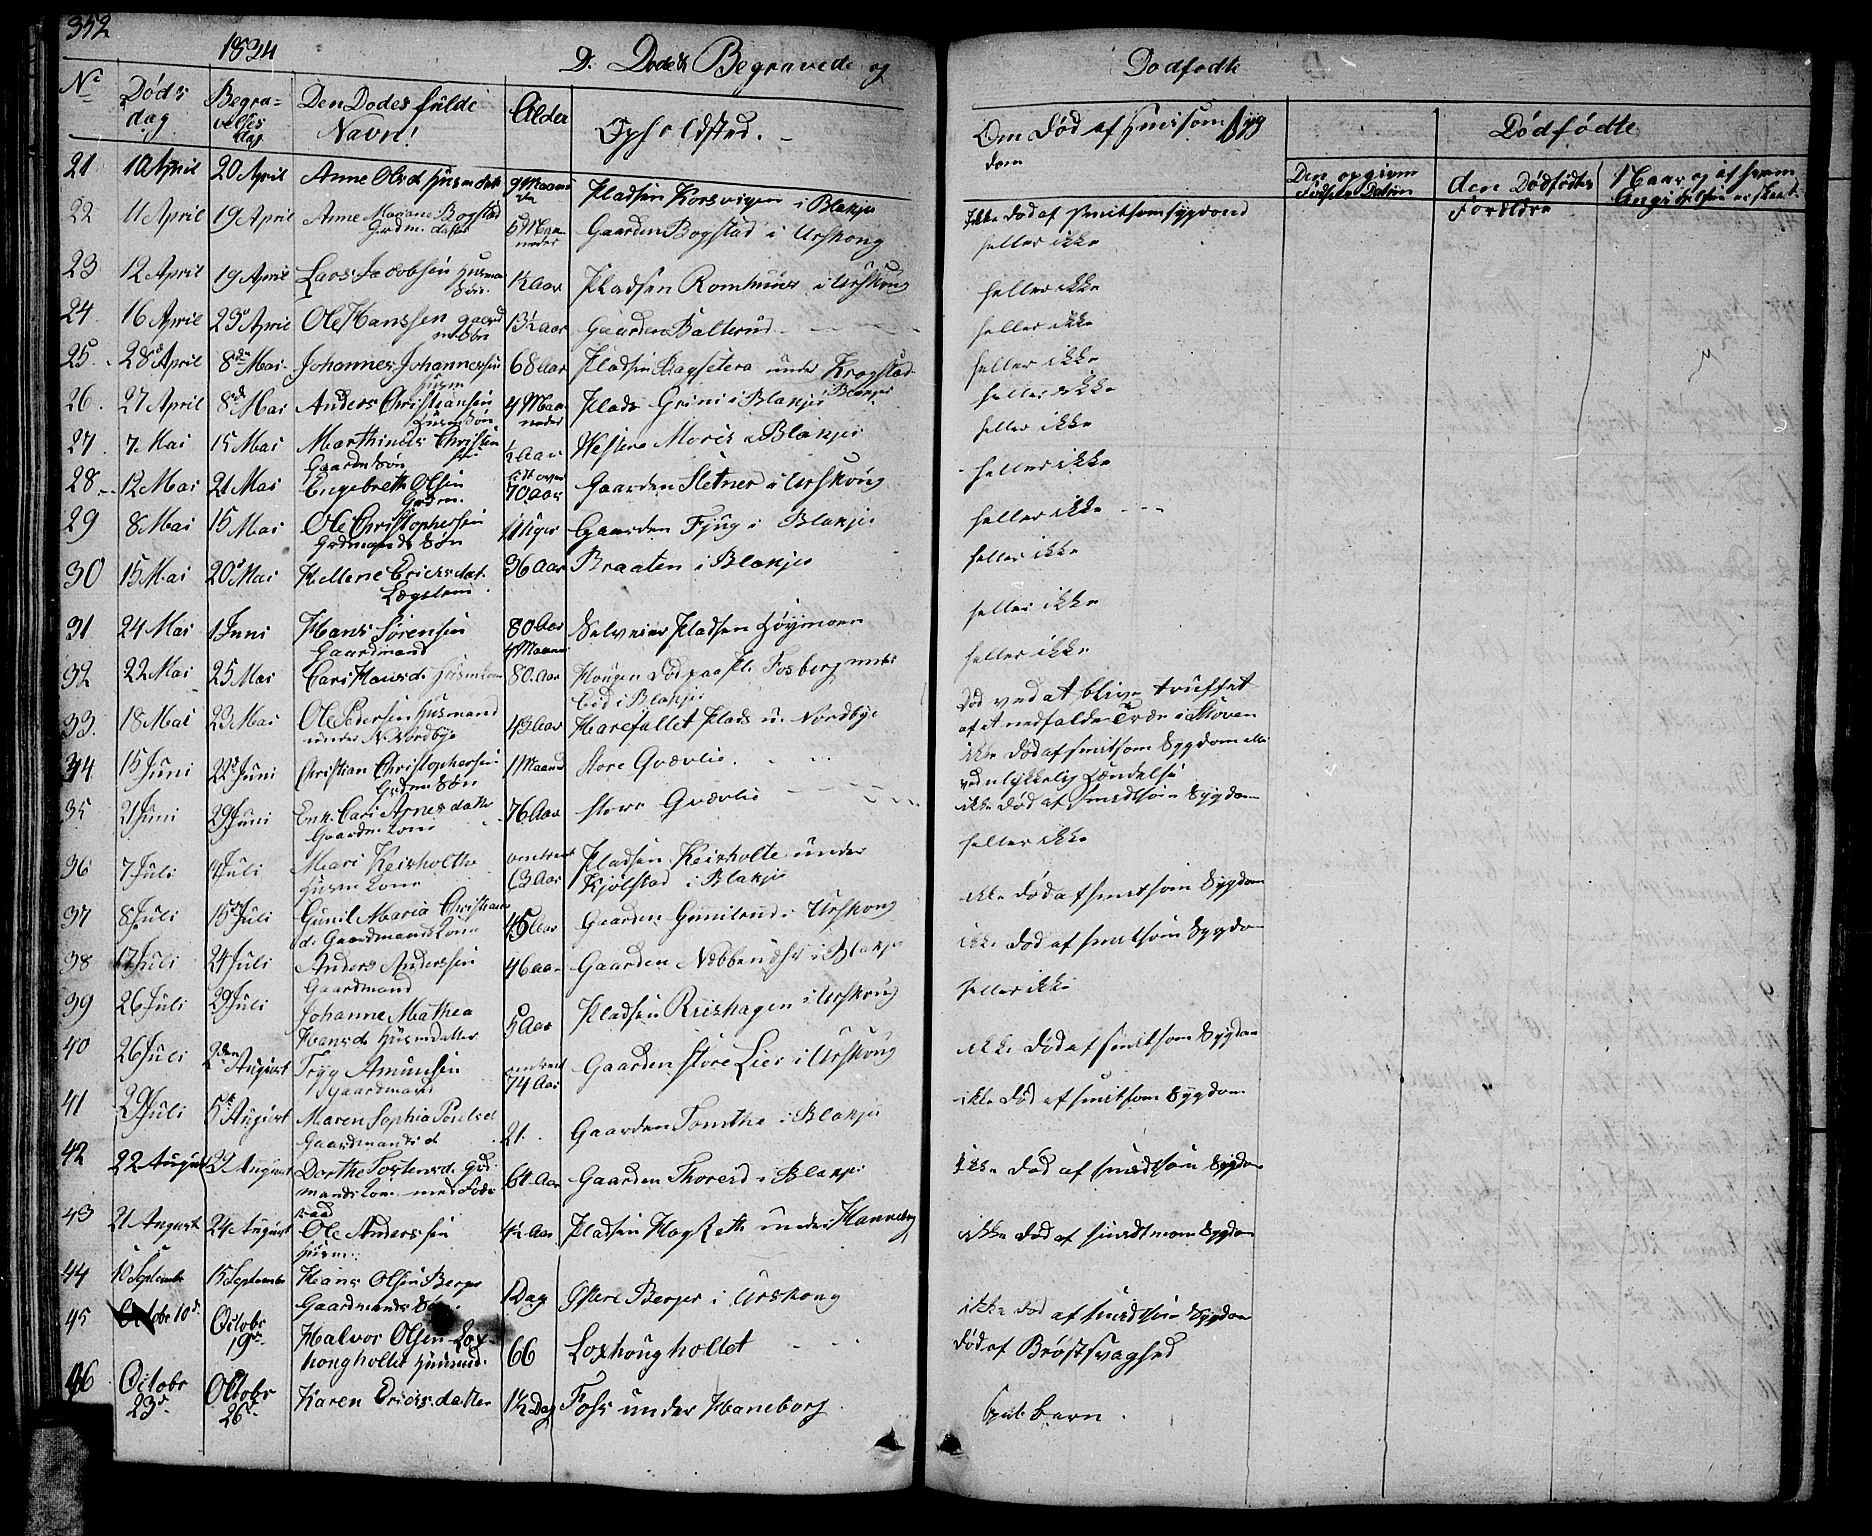 352
1834
D. Døde & Begravede og
Dødfødte
No
Døds dag
Begravelses dag
Den Dødes fulde Navn!
Alder
Opholdsted.
Om død af smitsom Sygdom
Dødfødte
den Dødfødtes Forældre
21 10 April 20 April Anne Olsd. Husm. datt. 9 Maaneder Pladsen Korsvigen i Blakjer
22 11 April 19 April Anne Mariane Bogstad Grdm. datter 5 Maaneder Gaarden Bogstad i Urskoug Ikke død af smitsom sygdom
heller ikke
23 12 April 19 April Lars Jacobsen Husmands Søn. ½ Aar Pladsen Romhuus i Urskoug heller ikke
24 16 April 23 April Ole Hanssen Gaardm. Søn 13½ Aar Gaarden Balterud heller ikke
25. 28de April 8de Mai. Johannes Johannessen Husm 68 Aar Pladsen Bagsetera under Krogstad Blakjer heller ikke
26. 27 April 8de Mai Anders Christiansen Husm. Søn 4 Maaneder Plads Grini i Blakjer heller ikke
27. 7 Mai 15 Mai Marthinus Christensen Gaardm. Søn ½ Aar Westere Moris i Blakjer heller ikke
28 12 Mai 21 Mai Engebreth Olsen Grdm. 70 Aar Gaarden Sletner i Urskoug heller ikke
29 8 Mai 15 Mai Ole Christophersen Grdmands Søn 11 Uger Gaarden Fjug i Blakjer heller ikke
30 15 Mai 20 Mai Kellene Ericsdat. Lægslem 36 Aar Braaten i Blakjer heller ikke
31 24 Mai 1 Juni Hans Sørensen Gaardmand 80 Aar 4 Maaned Selveier Pladsen Høymoen heller ikke
32 22 Mai 25 Mai Cari Hansd. Husmkone 80 Aar Hougen død paa Pl. Fosberg under Eid i Blakjer heller ikke
33. 18 Mai 23 Mai Ole Pedersen Husmand under N. Nordbye 43 Aar Harefallet Plads u. Nordbye Død ved at blive truffet af et nedfaldet Træ i Skoven
34 15 Juni 22 Juni Christian Christophersen Grdm. Søn 1 Maaned Store Gvævlie. ikke død af smitsom Sygdom eller ved ulykkelig Hændelse
35 21 Juni 29 Juni Enk. Cari Arnesdatter Gaardm. Kone 76 Aar Store Gvævlie ikke død af smitsom Sygdom
36 7 Juli 14 Juli Mari Keisholthe Husm Kone omtrent 63 Aar Pladsen Keisholte under Kjølstad i Blakjer heller ikke
37 8 Juli 15 Juli Gunil Maria Christians d. Gaardmands Kone 45 Aar Gaarden Gunilrud i Urskoug ikke død af smitsom Sygdom
38 17 Juli 24 Juli Anders Anderssen Gaardmand 46 aar Gaarden Næbbenæhs i Blakjer ikke død af smitsom Sygdom
39 26 Juli 29 Juli Johanne Mathea Hansd. Husmdatter 5 Aar Pladsen Reishagen i Urskoug heller ikke
40 26 Juli 2den August Tryg Amunsen Gaardmand omtrent 74 Aar Gaarden Store Lier i Urskoug ikke død af smitsom Sygdom
41 29 Juli 5te August Maren Sophia Poulsd. Gaardmands d 21. Gaarden Tomthe i Blakjer ikke død af smitsom Sygdom
42 22 August 22 August Dorthe Tostensd. Grdmands Kone med Føderaad 64 Aar Gaarden Thoreid i Blakjer Ikke død af smitsom Sygdom
43 21 August 24 August Ole Anderssen Husm: 42 Aar Pladsen Hagseth under Hanneborg ikke død af smitsom Sygdom
44 10 September 15 September Hans Olsen Berger Gaardmands Søn. 1 Dag Østere Berger i Urskoug ikke død af smitsom Sygdom
45 Octobr 10d. Octobr 19de Halvor Olsen Loxhoughollet Husmd. 66 Loxhoughollet død af Brøstsvaghed
46 Octobr 23de Oktobr 26de Karen Ericsdatter 1½ Dag Fohs under Haneborg. Spæd barn.